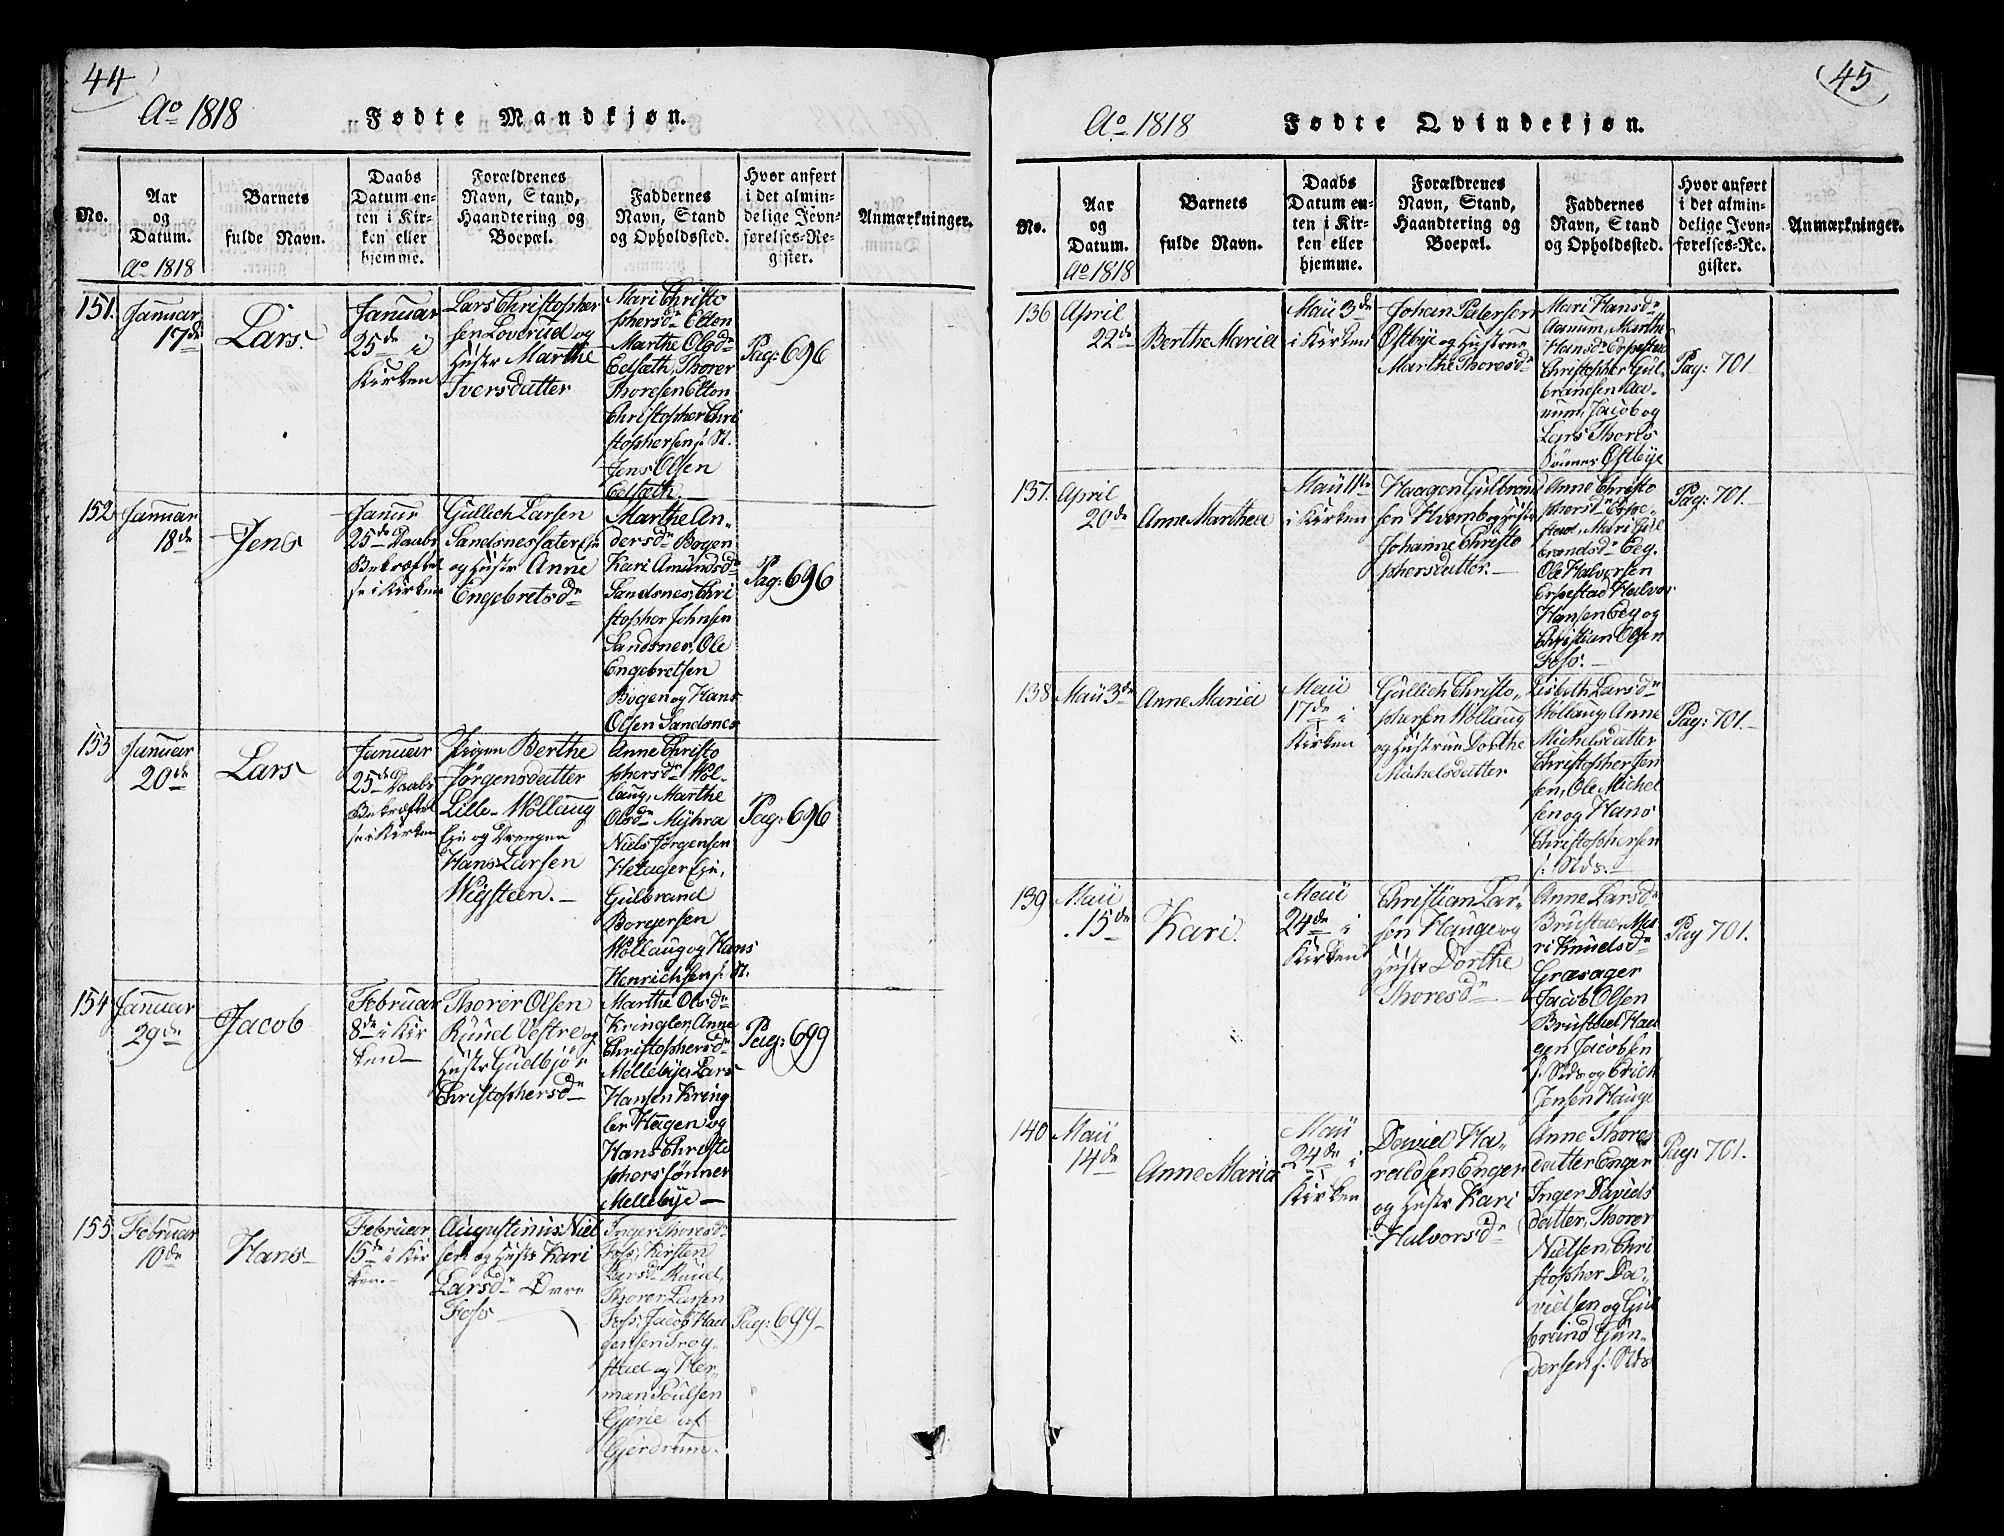 44
Ao 1818
Fødte Mandkjøn.
No.
Aar
og
Datum.
Ao 1818
Barnets
fulde Navn.
Daabs
Datum en-
ten i Kir-
ken eller
hjemme.
Forældrenes
Navn, Stand,
Haandtering og
Boepæl.
Faddernes
Navn, Stand
og Opholdssted.
Hvor anført
i det almin-
delige Jevn-
førelses-Re-
gister.
Anmærkninger.
151.
Januar
17de
Lars.
Januar
25de i
Kirken
Lars Christopher
sen Loverud og
Hustr Marthe
Iversdatter
Mari Christo
phersdr Elten
Marthe Olsdr
Edsæth, Thorer
Thoresen Elton
Christopher Chri
stophersen i: St.
Jens Olsen
Edsæth.
Pag: 696
152
Januar
18de
Jens
Janur
25de Daabs
Bekræftel
se i Kirken
Gullich Larsen
Sandsnessater Eje
og Hustr Anne
Engebretsdr
Marthe An-
dersdr Bogen
Kari Amundsdr
Sandsnes, Chri
stopher Johnsen
Sandsnes, Ole
Engebretsen
Bogen og Hans
Olsen Sandsnes
Pag: 696
153
Januar
20de
Lars
Januar
25de Daabs
Bekræftel
se i Kirken
Pigen Berthe
Jørgensdatter
Lille-Wollaug
Eje og Drengen
Hans Larsen
Wigsteen.
Anne Christo
phersdr Wol-
laug, Marthe
Olsdr Myhra
Niels Jørgensen
Hexager Eje,
Gulbrand
Borgersen
Wollaug og Hans
Henrichsen i: St.
Pag: 696
154
Januar
29de
Jacob
Februar
8de i Kir
ken
Thorer Olsen
Ruud Vestre og
Hustr Gudbjør
Christophersdr
Marthe Olsdr
Kringler, Anne
Christophersdr
Mellebye, Lars
Hansen Kring
ler Hagen og
Hans Christo
phersønner
Mellebye
Pag: 699
155
Februar
10de
Hans
Februar
15de i Kir
ken.
Augustinus Niel
sen og Hustr Kari
Larsdr Øvre
Foss
Inger Thoresdr
Foss, Kirsten
Larsdr Ruud,
Thorer Larsen
Foss, Jacob Haa
gensen Trog-
stad og Her-
man Poulsen
Gjerie af
Gjerdrum.
Pag: 699
45
Ao 1818
Fødte Qvindekjøn.
No.
Aar
og
Datum.
Ao 1818
Barnets
fulde Navn.
Daabs
Datum en-
ten i Kir-
ken eller
hjemme.
Forældrenes
Navn, Stand,
Haandtering og
Boepæl.
Faddernes
Navn, Stand
og Opholdssted.
Hvor anført
i det almin-
delige Jevn-
førelses-Re-
gister.
Anmærkninger.
136
April
22de
Berthe Maria
Maii 3de
i Kirken
Johan Petersen
Østbye og Hustrue
Marthe Thoresdr
Mari Hansdr
Aanum, Marthe
Hansdr Erpestad
Christopher Gul-
brandsen Aa-
num, Jacob og
Lars Thores
Sønner Østbye
Pag: 701
137.
April
20de
Anne Marthea
Maii 11te
i Kirken
Haagen Gulbrand
sen Hvam og Hustr
Johanne Christo
phersdatter.
Anne Christo
phersdr Erpe-
stad, Mari Gul
brandsdr Eeg.
Ole Halversen
Erpestad Halvor
Hansen Eeg og
Christian Olsen
Foss.
Pag: 701.
138
Maii 3de
Anne Maria
Maii
17de i
Kirken
Gullich Christo-
phersen Wollaug
og Hustrue Dorthe
Michelsdatter
Lisbeth Larsdr
Wollaug, Anne
Michelsdatter
Christophersen
sen, Ole Michel
sen og Hans
Christophersen
i: Stds.
Pag: 701
139
Maii
15de
Kari.
Maii
24de i
Kirken
Christian Lar-
sen Hauge og
Hustr Dorthe
Thoresdr
Anne Larsdr
Brustad, Ma
ri Knudsdr
Græsager
Jacob Olsen
Brustad Haa
gen Jacobsen
i: Stds og Erich
Jensen Hauge
Pag 701.
140
Maii
14de
Anne Maria
Maii
24de i
Kirken
Daniel Ha-
raldsen Enger
og Hustr Kari
Halvorsdr
Anne Thores
datter Enger
Inger Davids
datter, Thorer
Nielsen, Chri
stopher Da-
vidsen og Gul
brand Gun-
dersen i: Stds
Pag: 701.